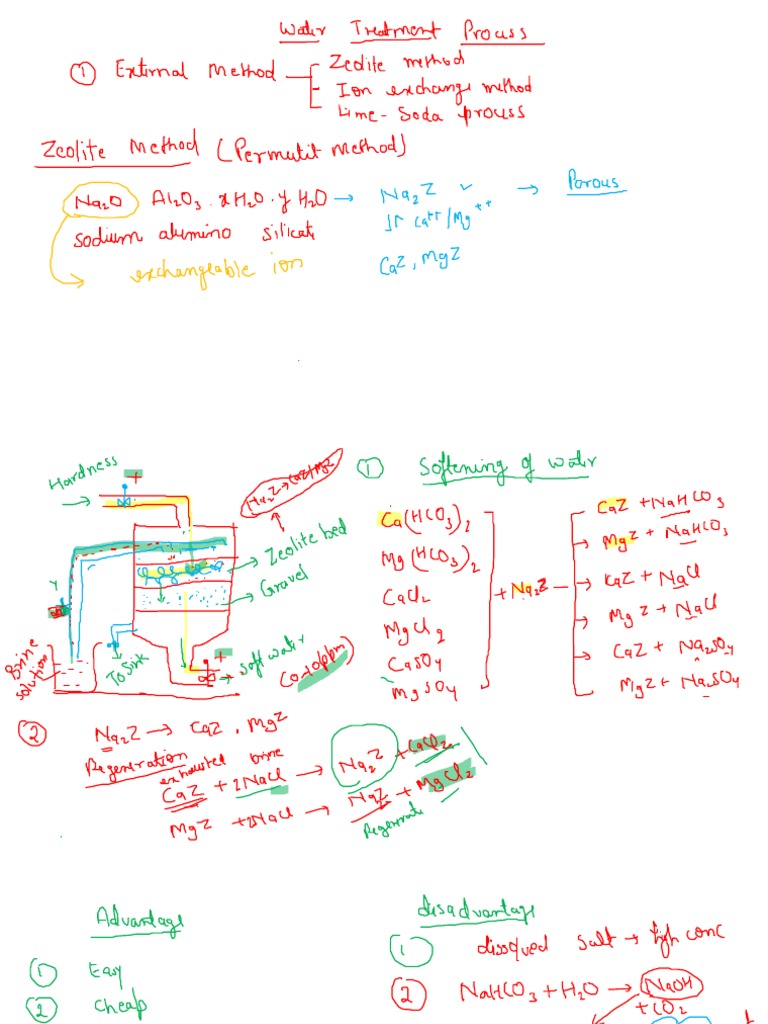 Water Treatment Prouss
① External Method
Zeolite method
Ion exchange method
Lime-Soda prouss
Zeolite Method (Permutit Method)
Na2O Al2O3 . xH2O . yH2O → Na2Z ✓ → Porous
↓↑ Ca++/Mg++
sodium alumino silicate
CaZ, MgZ
exchangeable ion
Hardness
+
Na2Z → CaZ/MgZ
Zeolite bed
Gravel
Y
Brine solution
To Sink
+
soft water
(0-10ppm)
① Softening of water
Ca(HCO3)2
Mg(HCO3)2
CaCl2
MgCl2
CaSO4
MgSO4
+ Na2Z
CaZ + NaHCO3
MgZ + NaHCO3
CaZ + NaCl
MgZ + NaCl
CaZ + Na2SO4
MgZ + Na2SO4
② Na2Z → CaZ, MgZ
Regeneration
exhausted brine
CaZ + 2NaCl → Na2Z + CaCl2
MgZ + 2NaCl → NaZ + MgCl2
Regenerate
Advantage
① Easy
② Cheap
disadvantage
① dissolved salt → high conc
② NaHCO3 + H2O → NaOH
+ CO2